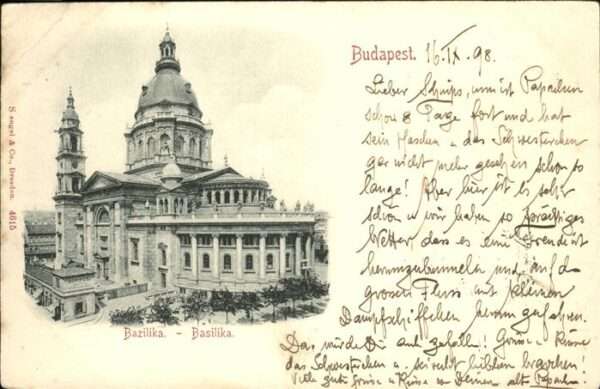 Budapest. 16. IX. 98.
Lieber Schnips, nun ist Papachen
schon 8 Tage fort und hat
sein Haschen u das Schwesterchen
gar nicht mehr gesehen schon so
lange! Aber hier ist es sehr
schön u wir haben so prächtiges
Wetter, dass es eine Freude ist
herumzubummeln und auf dem
grossen Fluss mit kleinen
Dampfschiffchen herumzufahren.
Das würde Dir auch gefallen! Grüsse u Küsse
das Schwesterchen u.
Viele gute Grüsse u Küsse v Deinem alten Papachen.
Bazilika. - Basilika.
Stengel & Co., Dresden. 4615